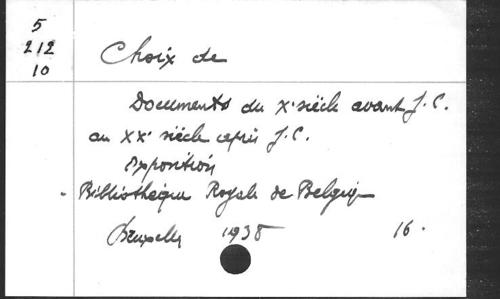 5
212
10
Choix de
Documents du Xe siècle avant J.C.
au XXe siècle après J.C.
Exposition
Bibliothèque Royale de Belgique
Bruxelles 1938 16.